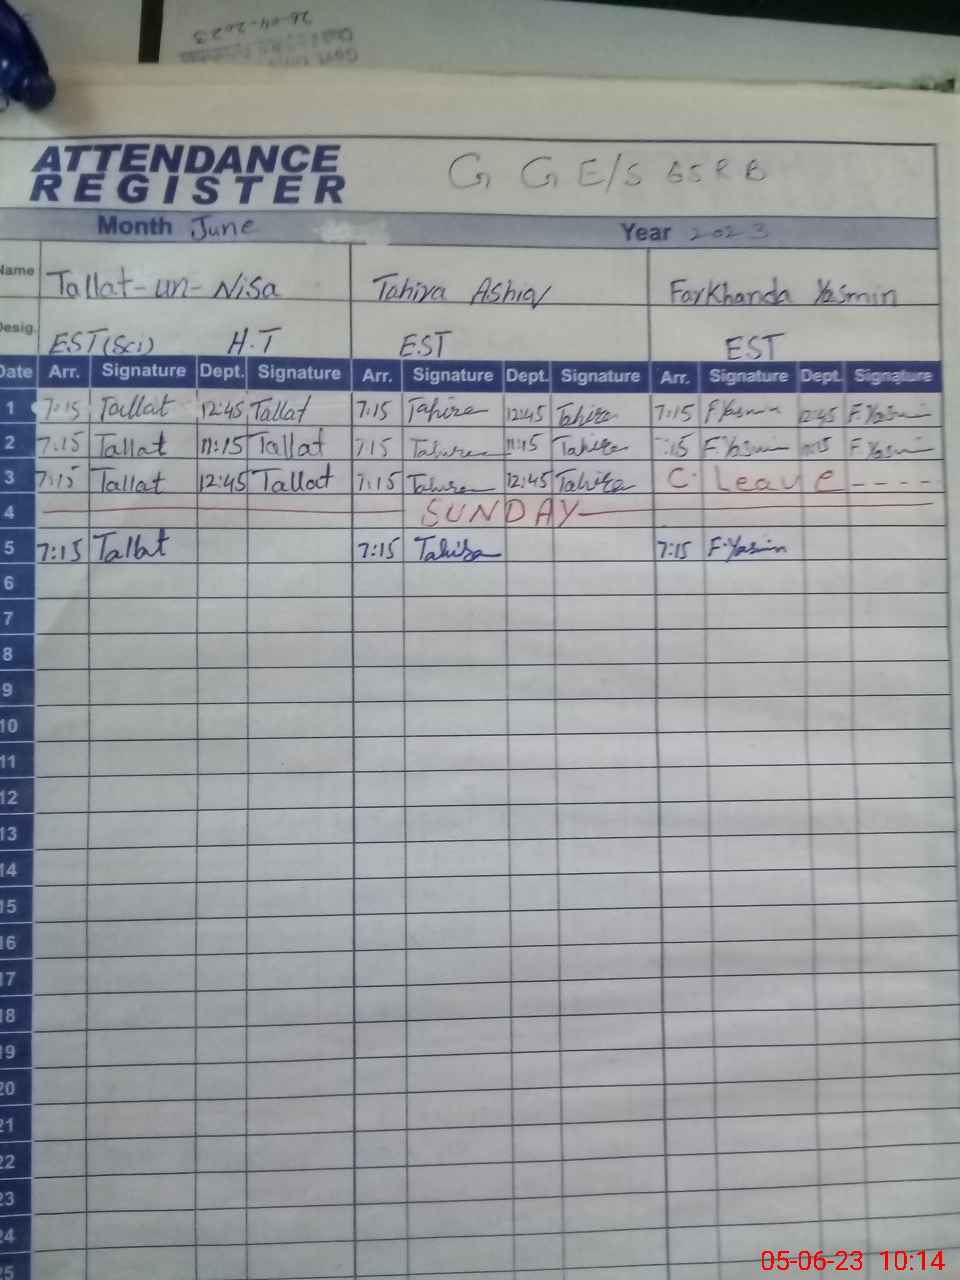 26-04-2023
ATTENDANCE
REGISTER
G G E/S 65 R B
Month June
Year 2023
Name Tallat-un-Nisa Tahira Ashiq Farkhanda Yasmin
Desig. EST(Sci) H.T EST EST
Date Arr. Signature Dept. Signature Arr. Signature Dept. Signature Arr. Signature Dept. Signature
1 7:15 Tallat 12:45 Tallat 7:15 Tahira 12:45 Tahira 7:15 F.Yasmin 12:45 F.Yasmin
2 7:15 Tallat 11:15 Tallat 7:15 Tahira 11:15 Tahira 7:15 F.Yasmin 11:15 F.Yasmin
3 7:15 Tallat 12:45 Tallat 7:15 Tahira 12:45 Tahira C. Leave ----
4 SUNDAY
5 7:15 Tallat 7:15 Tahira 7:15 F.Yasmin
6
7
8
9
10
11
12
13
14
15
16
17
18
19
20
21
22
23
24
25
05-06-23 10:14